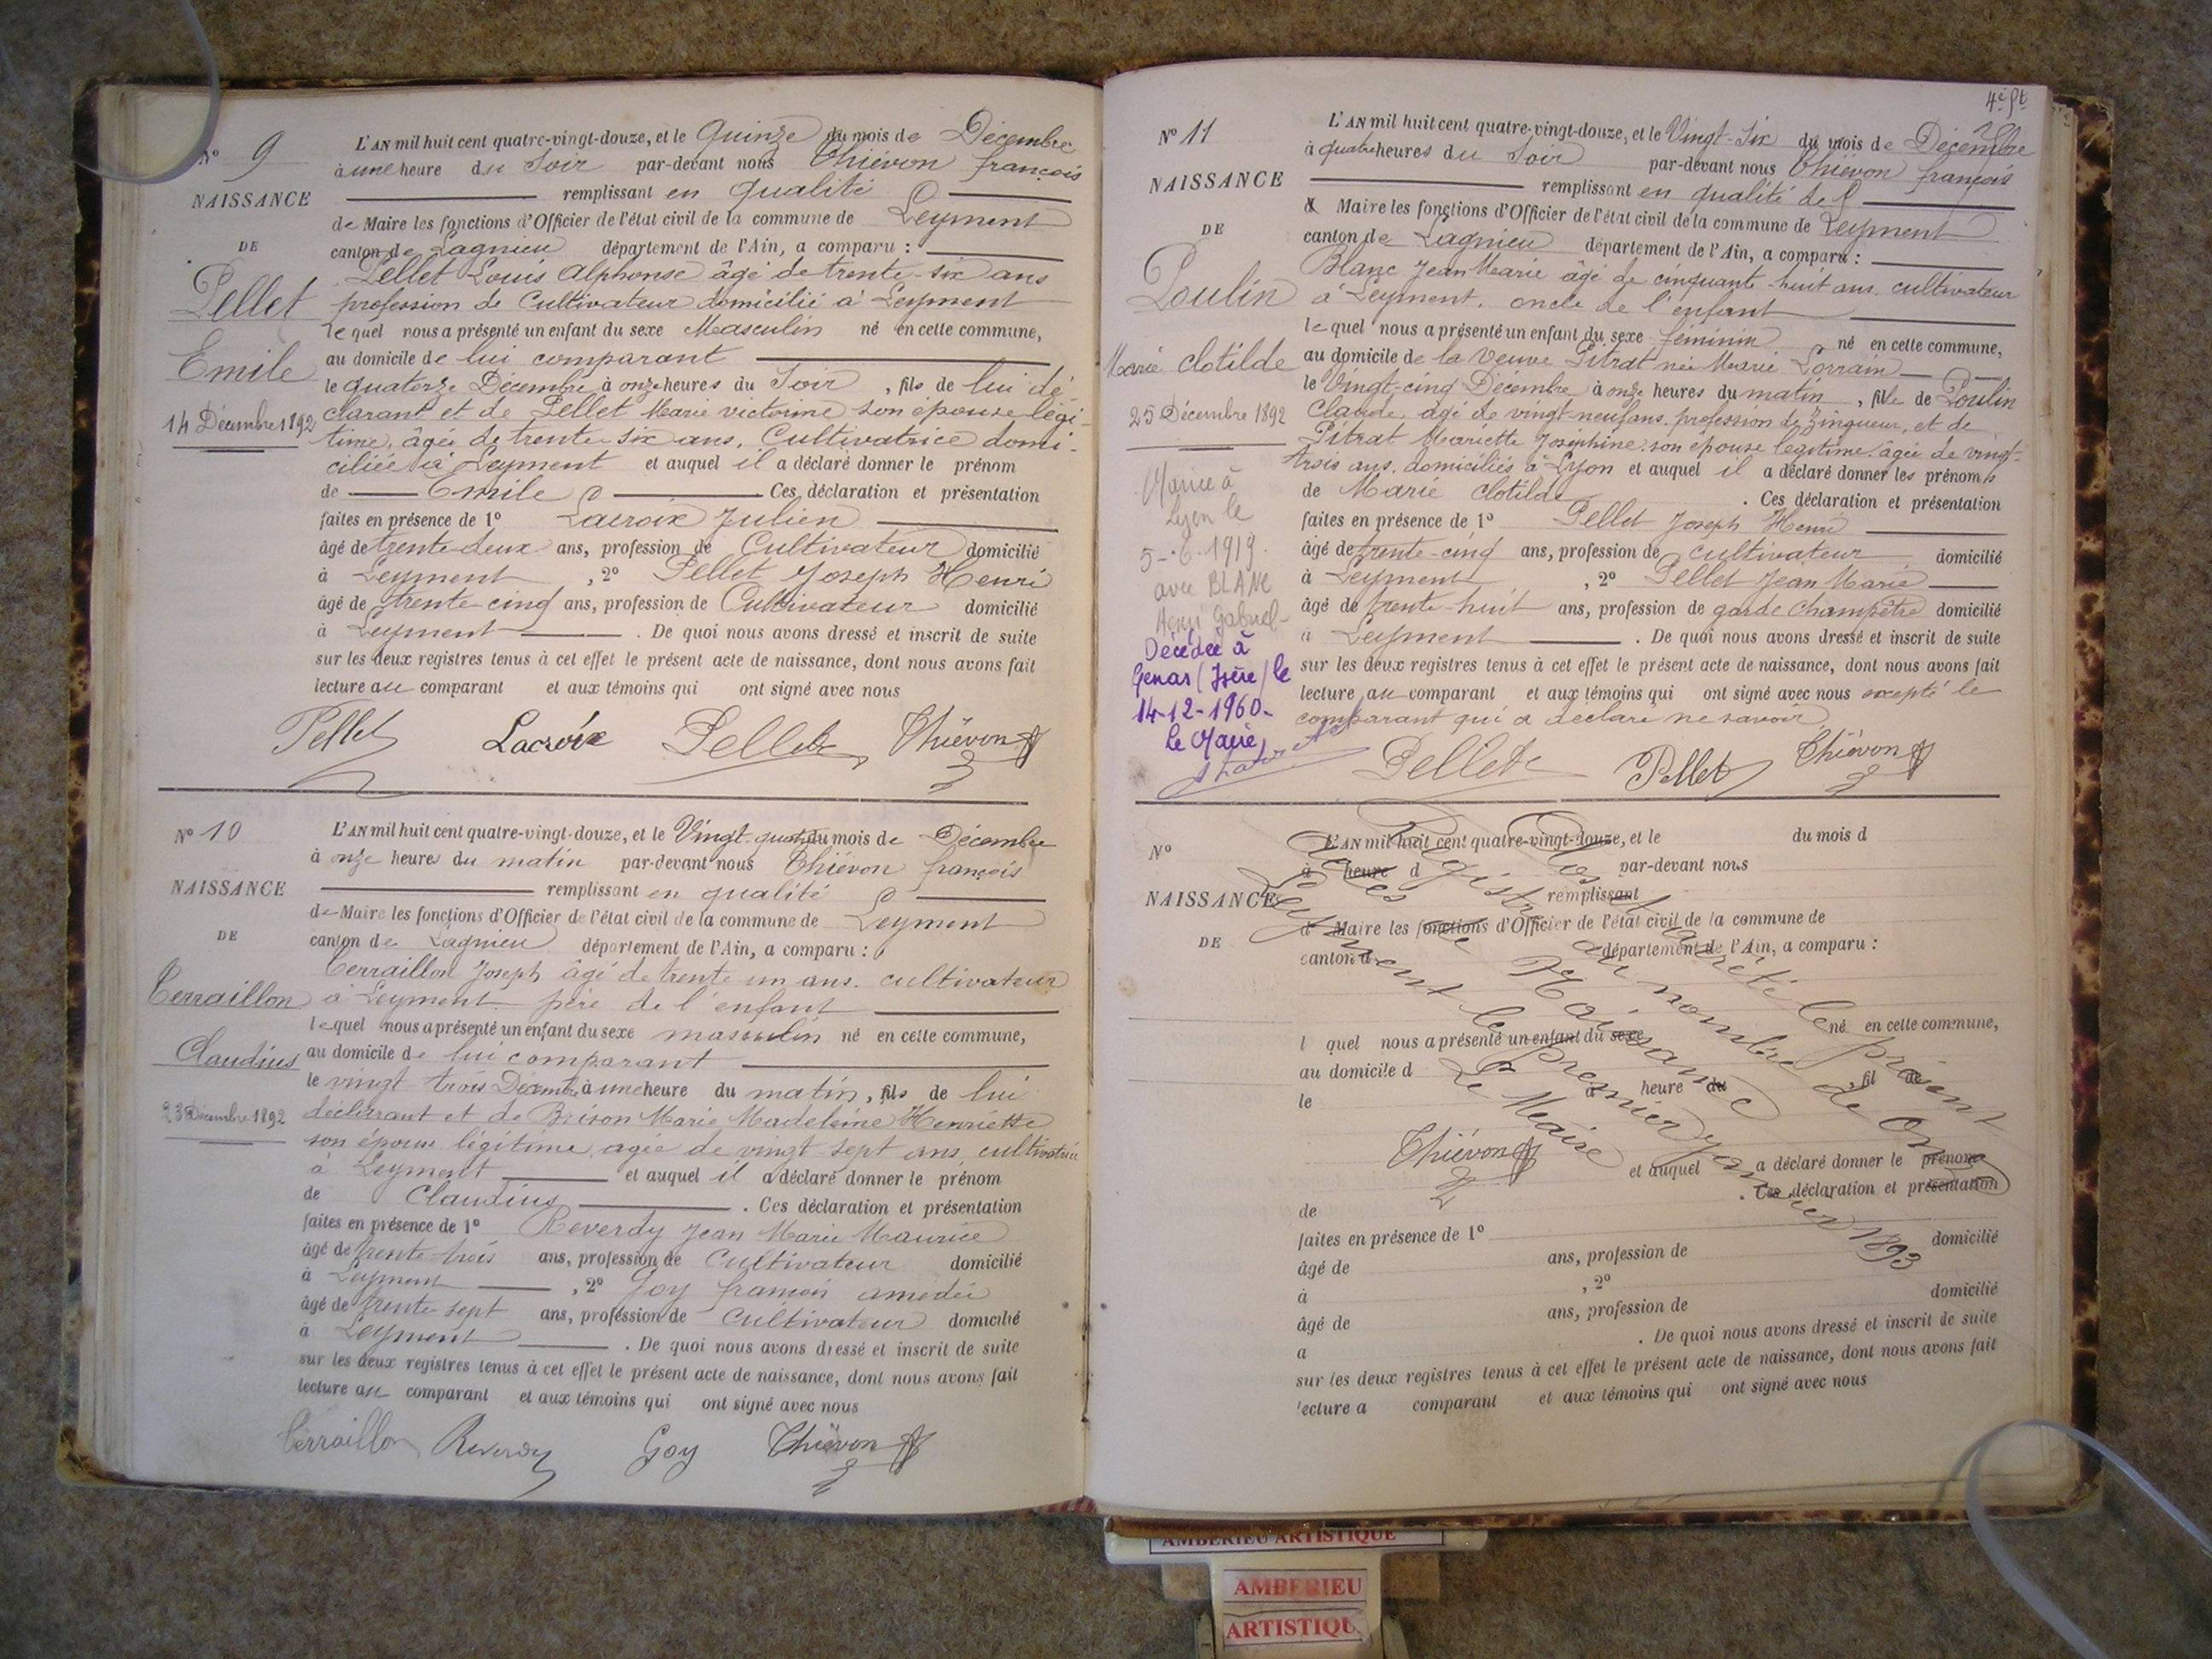 N° 9
NAISSANCE
DE
Pellet
Emile
14 Décembre 1892
L'AN mil huit cent quatre-vingt-douze, et le Quinze du mois de Décembre
à une heure du Soir par-devant nous Thiévon françois
remplissant en qualité
de Maire les fonctions d'Officier de l'état civil de la commune de Leyment
canton de Lagnieu département de l'Ain, a comparu :
Pellet Louis Alphonse âgé de trente-six ans
profession de Cultivateur domicilié à Leyment
lequel nous a présenté un enfant du sexe Masculin né en cette commune,
au domicile de lui comparant
le quatorze Décembre à onze heures du Soir, fils de lui dé-
clarant et de Pellet Marie victorine son épouse légi-
time, âgée de trente-six ans, Cultivatrice domi-
ciliée à Leyment et auquel il a déclaré donner le prénom
de Emile Ces déclaration et présentation
faites en présence de 1° Lacroix Julien
âgé de trente-deux ans, profession de Cultivateur domicilié
à Leyment, 2° Pellet Joseph Henri
âgé de trente-cinq ans, profession de Cultivateur domicilié
à Leyment. De quoi nous avons dressé et inscrit de suite
sur les deux registres tenus à cet effet le présent acte de naissance, dont nous avons fait
lecture au comparant et aux témoins qui ont signé avec nous
Pellet Lacroix Pellet Thiévon
N° 10
NAISSANCE
DE
Terraillon
Claudius
23 Décembre 1892
L'AN mil huit cent quatre-vingt-douze, et le Vingt-quatre du mois de Décembre
à onze heures du matin par-devant nous Thiévon françois
remplissant en qualité
de Maire les fonctions d'Officier de l'état civil de la commune de Leyment
canton de Lagnieu département de l'Ain, a comparu :
Terraillon Joseph âgé de trente un ans. cultivateur
à Leyment père de l'enfant
lequel nous a présenté un enfant du sexe masculin né en cette commune,
au domicile de lui comparant
le vingt-trois Décembre à une heure du matin, fils de lui
déclarant et de Brison Marie Madeleine Henriette
son épouse légitime, agée de vingt-sept ans, cultivatrice
à Leyment et auquel il a déclaré donner le prénom
de Claudius. Ces déclaration et présentation
faites en présence de 1° Reverdy Jean Marie Maurice
âgé de trente-trois ans, profession de Cultivateur domicilié
à Leyment, 2° Goy françois amédée
âgé de trente-sept ans, profession de Cultivateur domicilié
à Leyment. De quoi nous avons dressé et inscrit de suite
sur les deux registres tenus à cet effet le présent acte de naissance, dont nous avons fait
lecture au comparant et aux témoins qui ont signé avec nous
Terraillon Reverdy Goy Thiévon
4e ft
N° 11
NAISSANCE
DE
Poulin
Marie Clotilde
25 Décembre 1892
Mariée à
Lyon le
5-6-1919.
avec BLANC
Henri Gabriel
Décédée à
Genas (Isère) le
14-12-1960.
Le Maire,
L'AN mil huit cent quatre-vingt-douze, et le Vingt-Six du mois de Décembre
à quatre heures du Soir par-devant nous Thiévon françois
remplissant en qualité de
d Maire les fonctions d'Officier de l'état civil de la commune de Leyment
canton de Lagnieu département de l'Ain, a comparu :
Blanc Jean Marie âgé de cinquante-huit ans. cultivateur
à Leyment, oncle de l'enfant
lequel nous a présenté un enfant du sexe féminin né en cette commune,
au domicile de la Veuve Pitrat née Marie Lorrain
le Vingt-cinq Décembre à onze heures du matin, fille de Poulin
Claude, agé de vingt-neuf ans, profession de Zingueur, et de
Pitrat Mariette Joséphine, son épouse légitime, âgée de vingt-
trois ans, domiciliés à Lyon et auquel il a déclaré donner les prénoms
de Marie Clotilde. Ces déclaration et présentation
faites en présence de 1° Pellet Joseph Henri
âgé de trente-cinq ans, profession de cultivateur domicilié
à Leyment, 2° Pellet Jean Marie
âgé de trente-huit ans, profession de garde Champêtre domicilié
à Leyment. De quoi nous avons dressé et inscrit de suite
sur les deux registres tenus à cet effet le présent acte de naissance, dont nous avons fait
lecture au comparant et aux témoins qui ont signé avec nous excepté le
comparant qui a déclaré ne savoir
Pellet Pellet Thiévon
N°
NAISSANCE
DE
L'AN mil huit cent quatre-vingt-douze, et le du mois d
à heure d par-devant nous
remplissant
d Maire les fonctions d'Officier de l'état civil de la commune de
canton d département de l'Ain, a comparu :
l quel nous a présenté un enfant du sexe né en cette commune,
au domicile d
le à heure du , fil de
et auquel a déclaré donner le prénom
de . Ces déclaration et présentation
faites en présence de 1°
âgé de ans, profession de domicilié
à , 2°
âgé de ans, profession de domicilié
à . De quoi nous avons dressé et inscrit de suite
sur les deux registres tenus à cet effet le présent acte de naissance, dont nous avons fait
lecture a comparant et aux témoins qui ont signé avec nous
Clos et arrêté le présent
Registre au nombre de Onze
actes de Naissance
Leyment le premier Janvier 1893
Le Maire
Thiévon
AMBERIEU ARTISTIQUE
AMBERIEU
ARTISTIQU